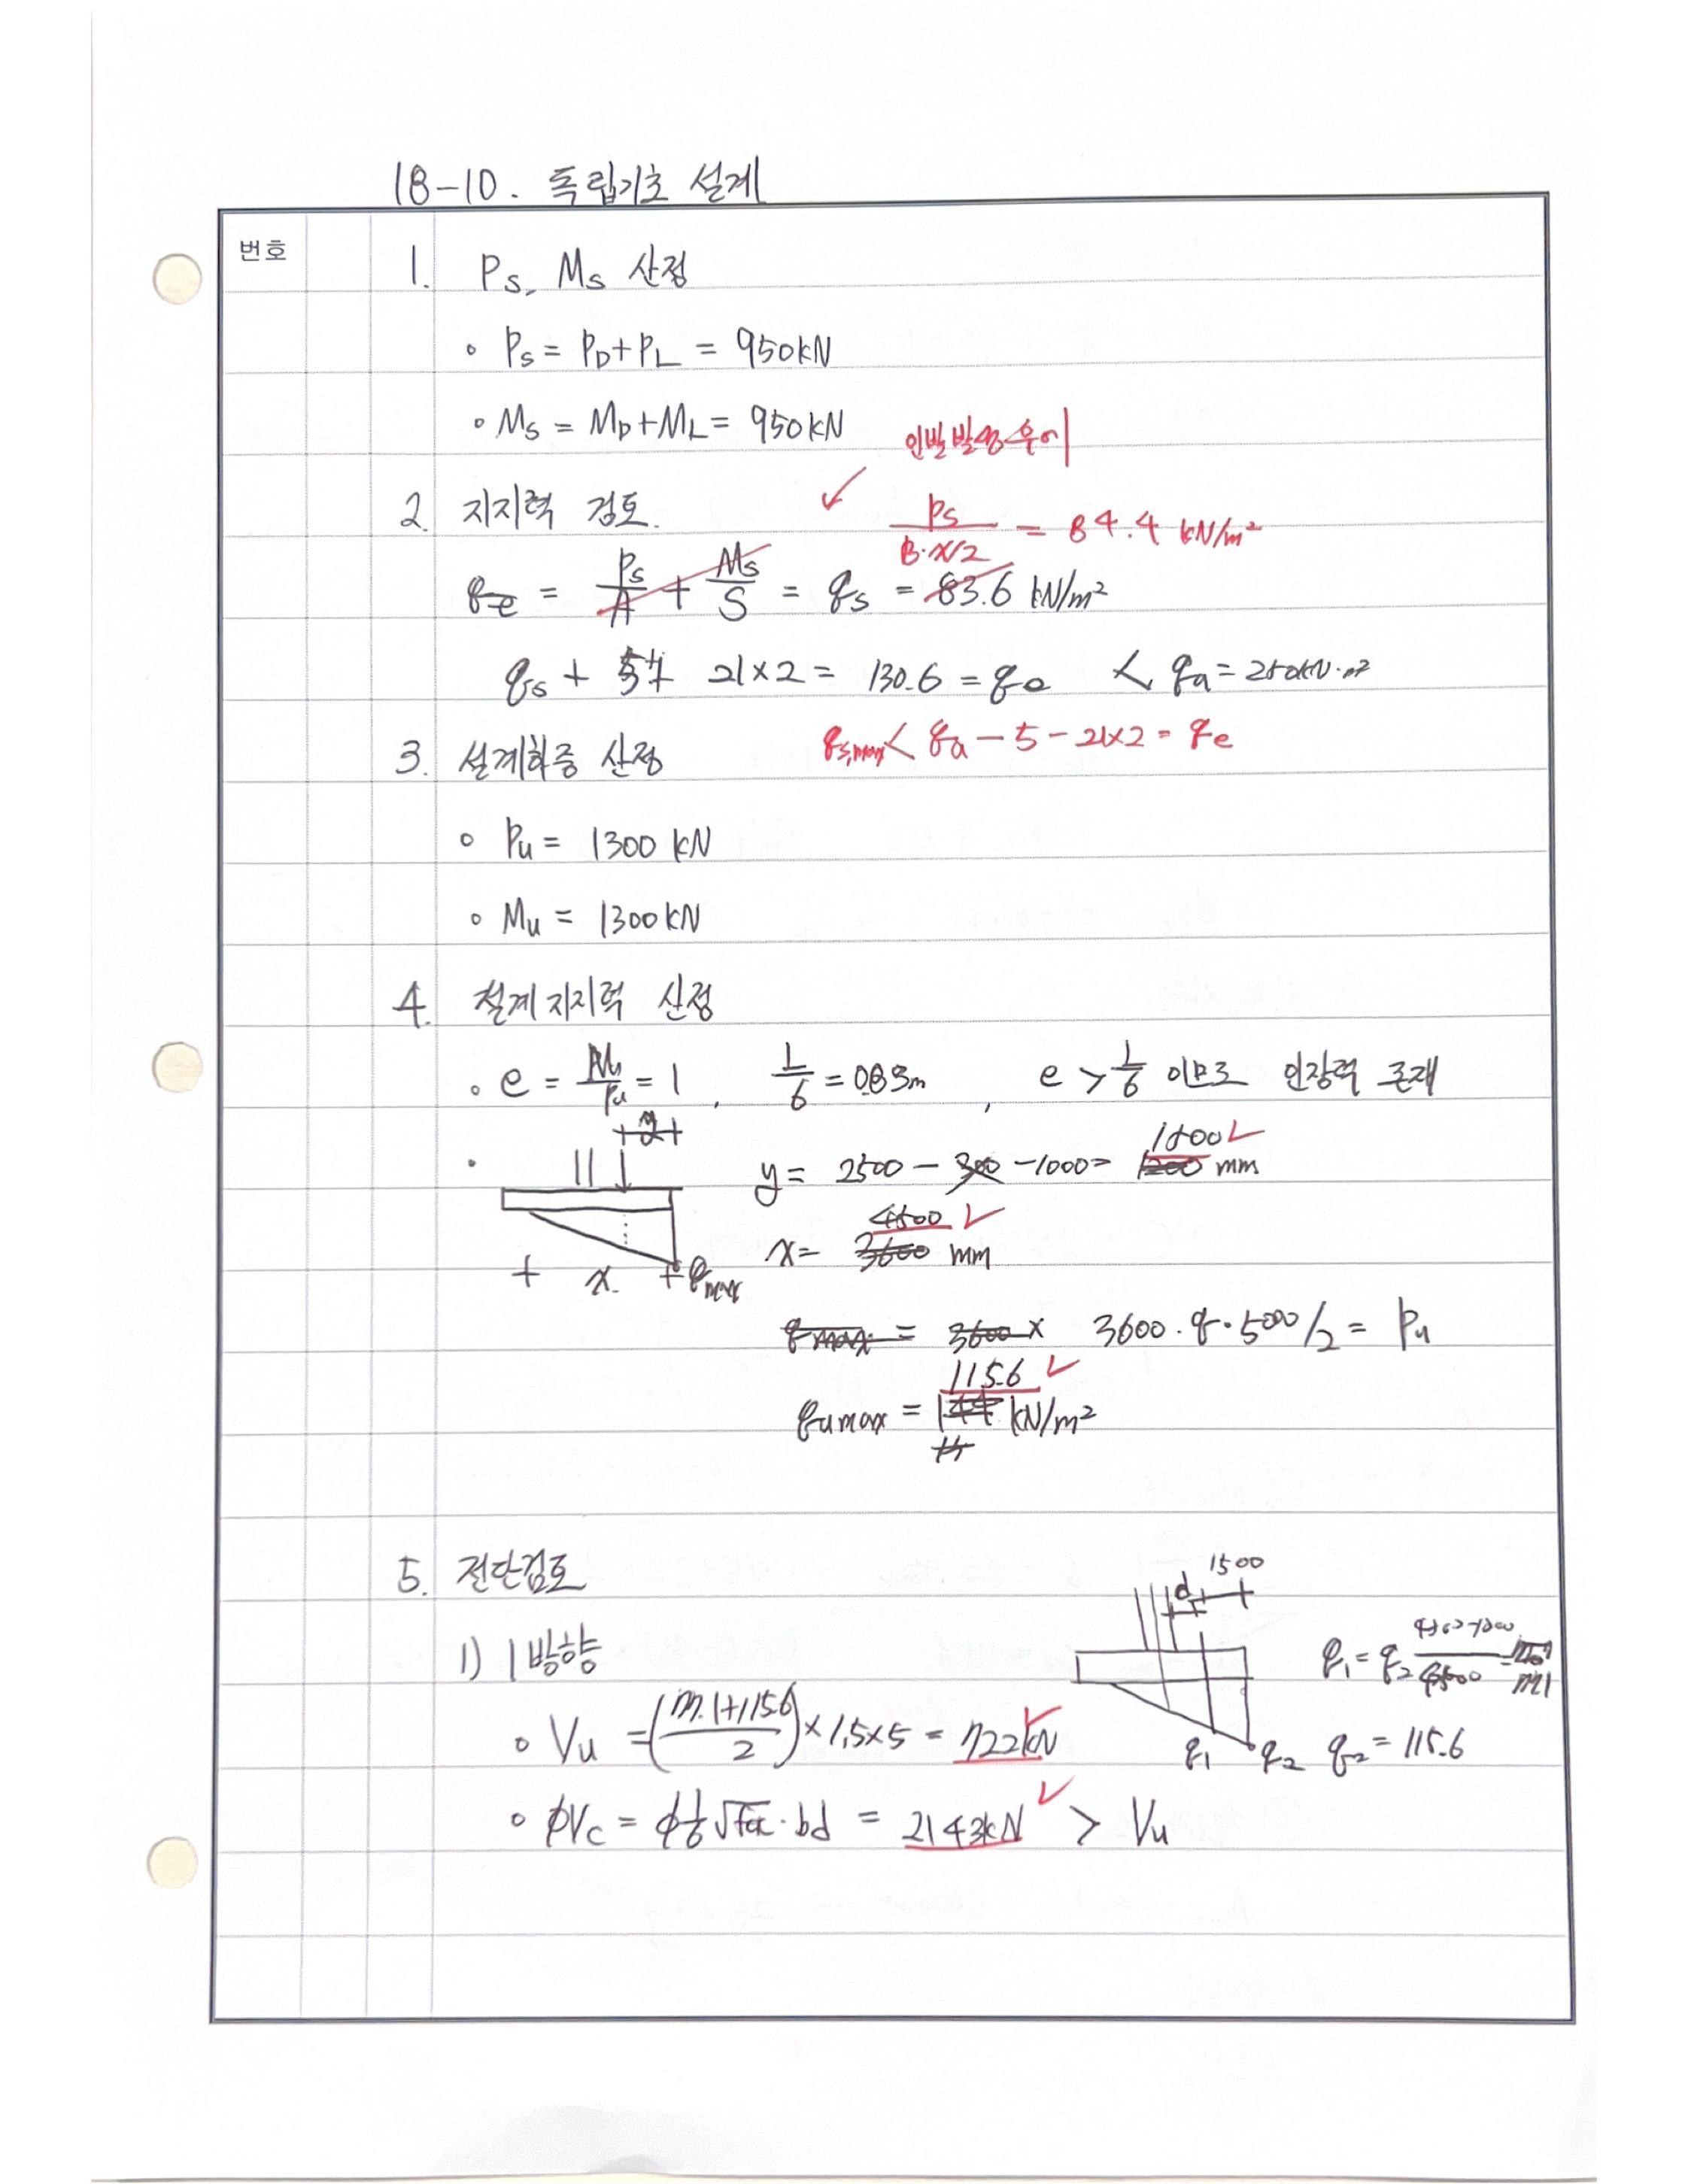 18-10. 독립기초 설계
번호
1. Ps, Ms 산정
∘ Ps = PD+PL = 950kN
∘ Ms = MD+ML = 950kN
인발발생후에
2. 지지력 검토.
✓ Ps / B·x/2 = 84.4 kN/m²
qe = Ps/A + Ms/S = qs = 83.6 kN/m²
qs + 5+ 21×2 = 130.6 = qe < qa = 250kN·m²
qs,max < qa − 5 − 21×2 = qe
3. 설계하중 산정
∘ Pu = 1300 kN
∘ Mu = 1300kN
4. 설계지지력 산정
∘ e = Mu/Pu = 1 , L/6 = 0.83m , e > L/6 이므로 인장력 존재
y
y = 2500 − 300 − 1000 = 1200 1500 ✓ mm
x = 3600 4500 ✓ mm
x qmax
qmax = 3600 × 3600·q·5000/2 = Pu
qumax = 144 115.6 ✓ kN/m²
5. 전단검토
d 1500
1) 1방향
q1 = q2
∘ Vu = ( +115.6 / 2) × 1.5×5 = 722kN ✓
q1 q2 q2 = 115.6
∘ ϕVc = ϕ 1/6 √fck · bd = 2143kN ✓ > Vu